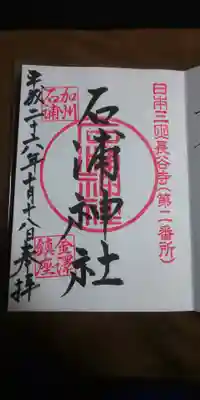 日本三所長谷寺(第二番所)
石浦神社
加州
石浦
金澤
鎮座
平成二十六年十月十八日奉拝